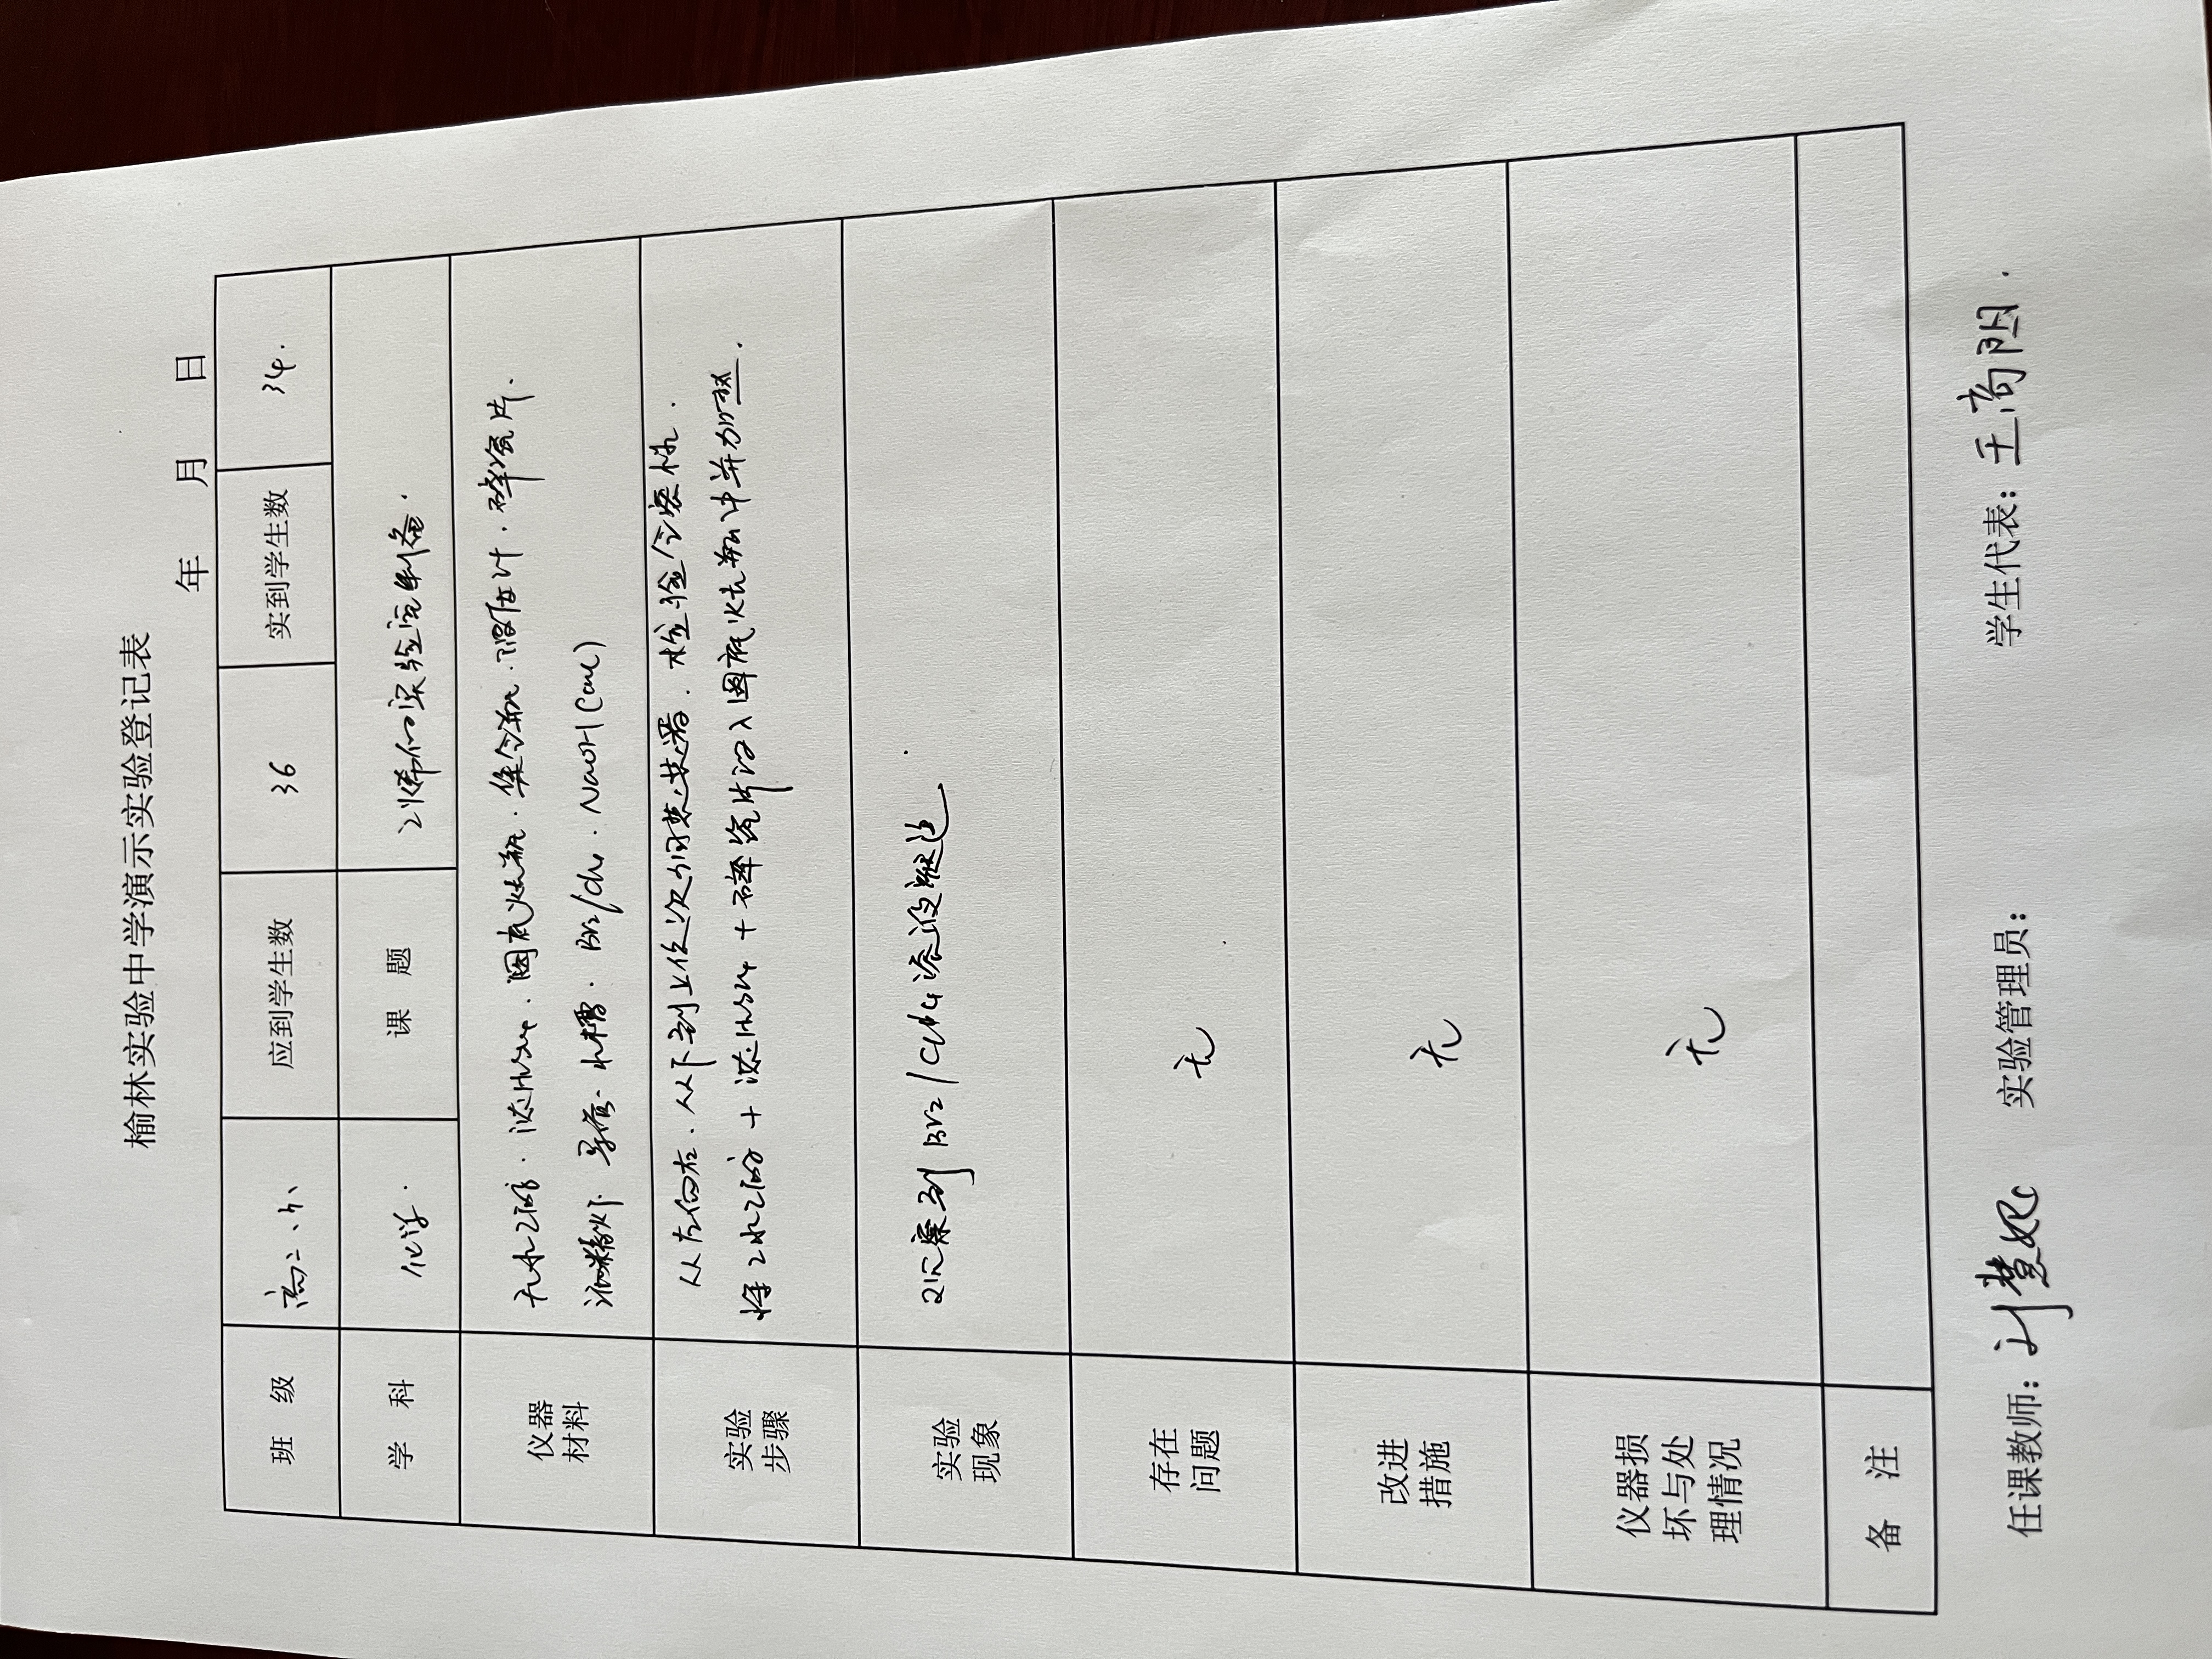 榆林实验中学演示实验登记表
年 月 日
班 级 高二、 应到学生数 36 实到学生数 34.
学 科 化学. 课 题 乙烯的实验室制备.
仪器材料 无水乙醇. 浓H₂SO₄. 圆底烧瓶. 集气瓶. 温度计. 碎瓷片.
酒精灯 导管、水槽. Br₂/CCl₄. NaOH(aq)
实验步骤 从左向右. 从下到上依次组装仪器. 检验气密性.
将无水乙醇 + 浓H₂SO₄ + 碎瓷片记入圆底烧瓶中并加热.
实验现象 观察到 Br₂/CCl₄溶液褪色.
存在问题 无
改进措施 无
仪器损坏与处理情况 无
备 注
任课教师: 实验管理员: 学生代表: 王高阳.